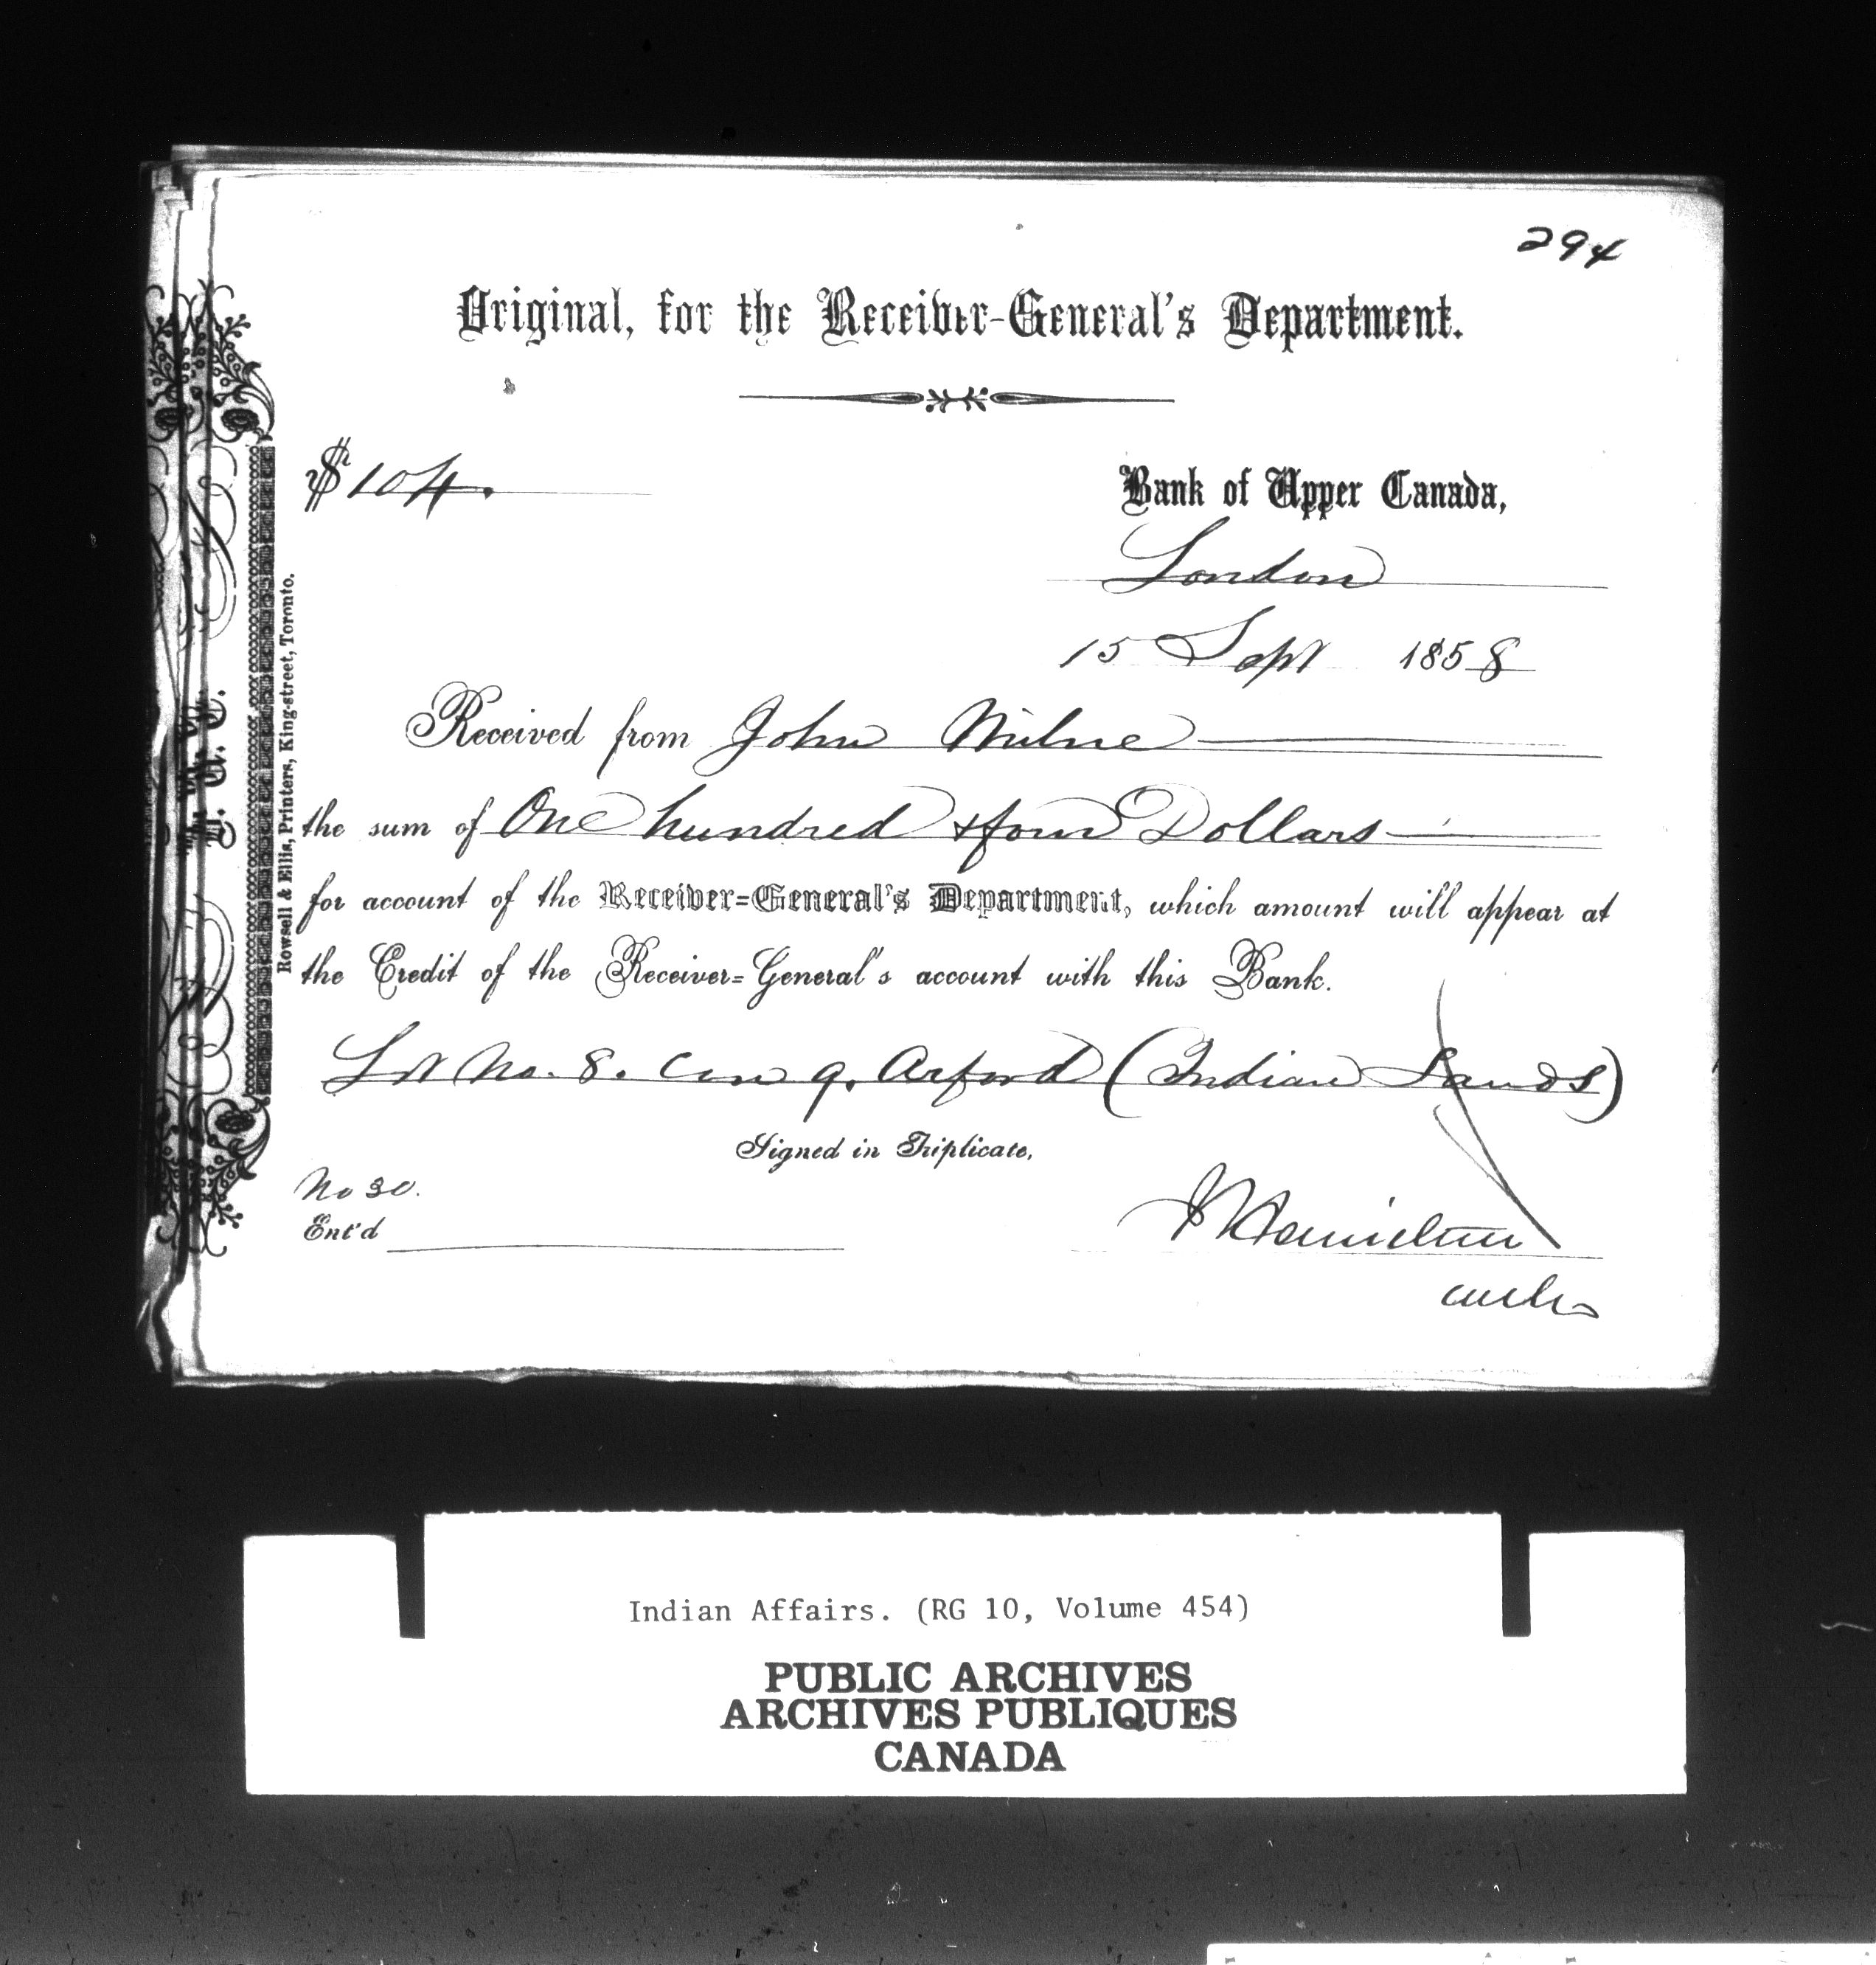 294
Original, for the Receiver-General's Department.
$104.
Bank of Upper Canada,
London
15 Sept 1858
Received from John Milne
the sum of One hundred & four Dollars
for account of the Receiver=General's Department, which amount will appear at
the Credit of the Receiver=General's account with this Bank.
Lot No. 8. Con 9. Arford (Indian Lands)
Signed in Triplicate,
No 30.
Ent'd
Hamilton
Rowsell & Ellis, Printers, King-street, Toronto.
Indian Affairs. (RG 10, Volume 454)
PUBLIC ARCHIVES
ARCHIVES PUBLIQUES
CANADA